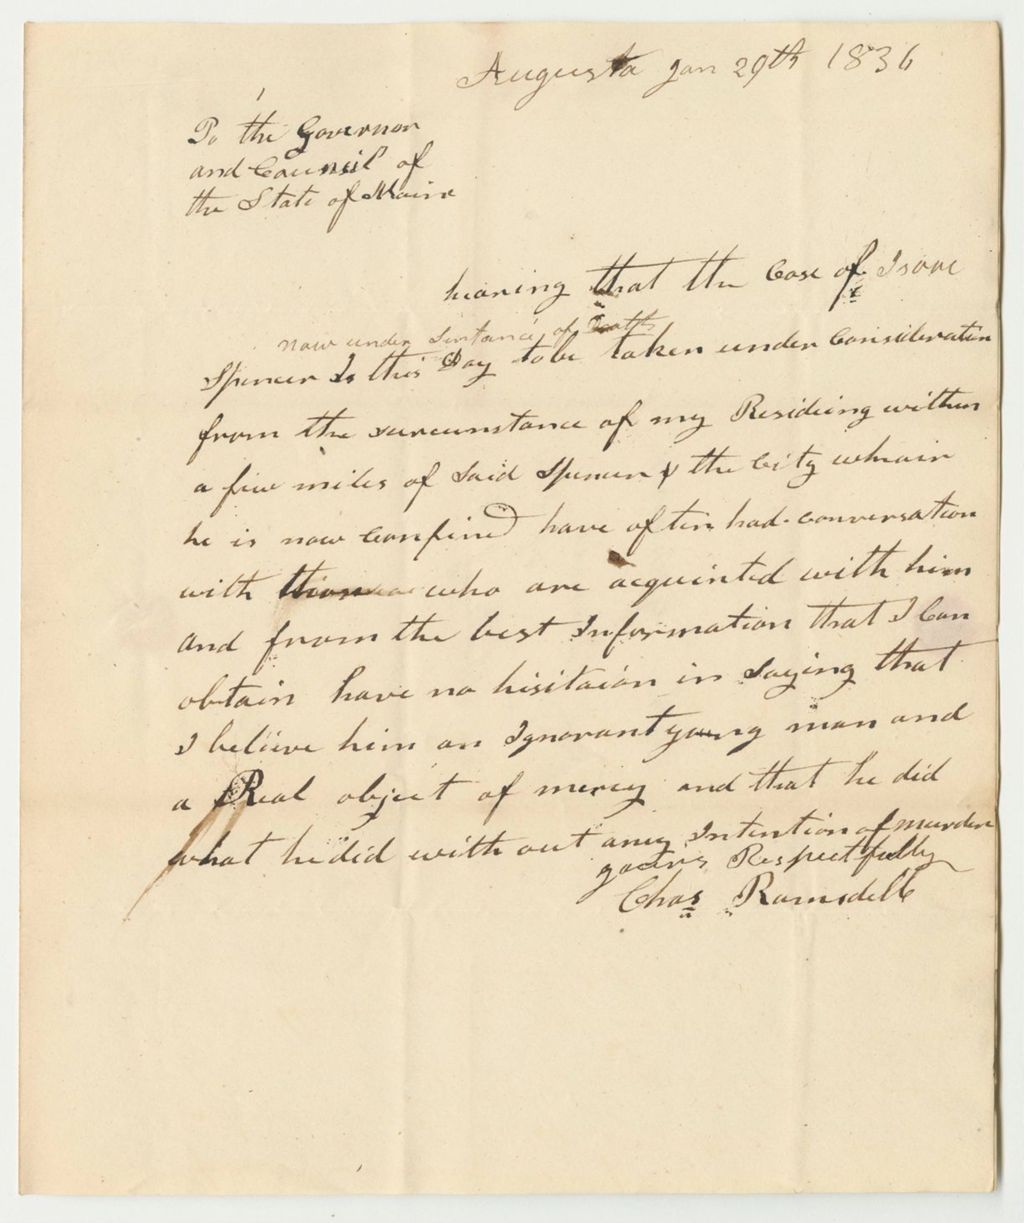 Augusta Jan 29th 1836
To the Governor
and Council of
the State of Maine
hearing that the Case of Isaac
now under Sentance of Death
Spencer Is this Day to be taken under Consideration
from the surcumstance of my Residing within
a few miles of Said Spencer & the City whrain
he is now Confined have often had conversation
with who are acquinted with him
and from the best Information that I Can
obtain have no hisitaion in Saying that
I beleive him an Ignorant young man and
a Real object of mercy and that he did
what he did with out any Intention of murder
yours Respectfully
Chas Ramsdell